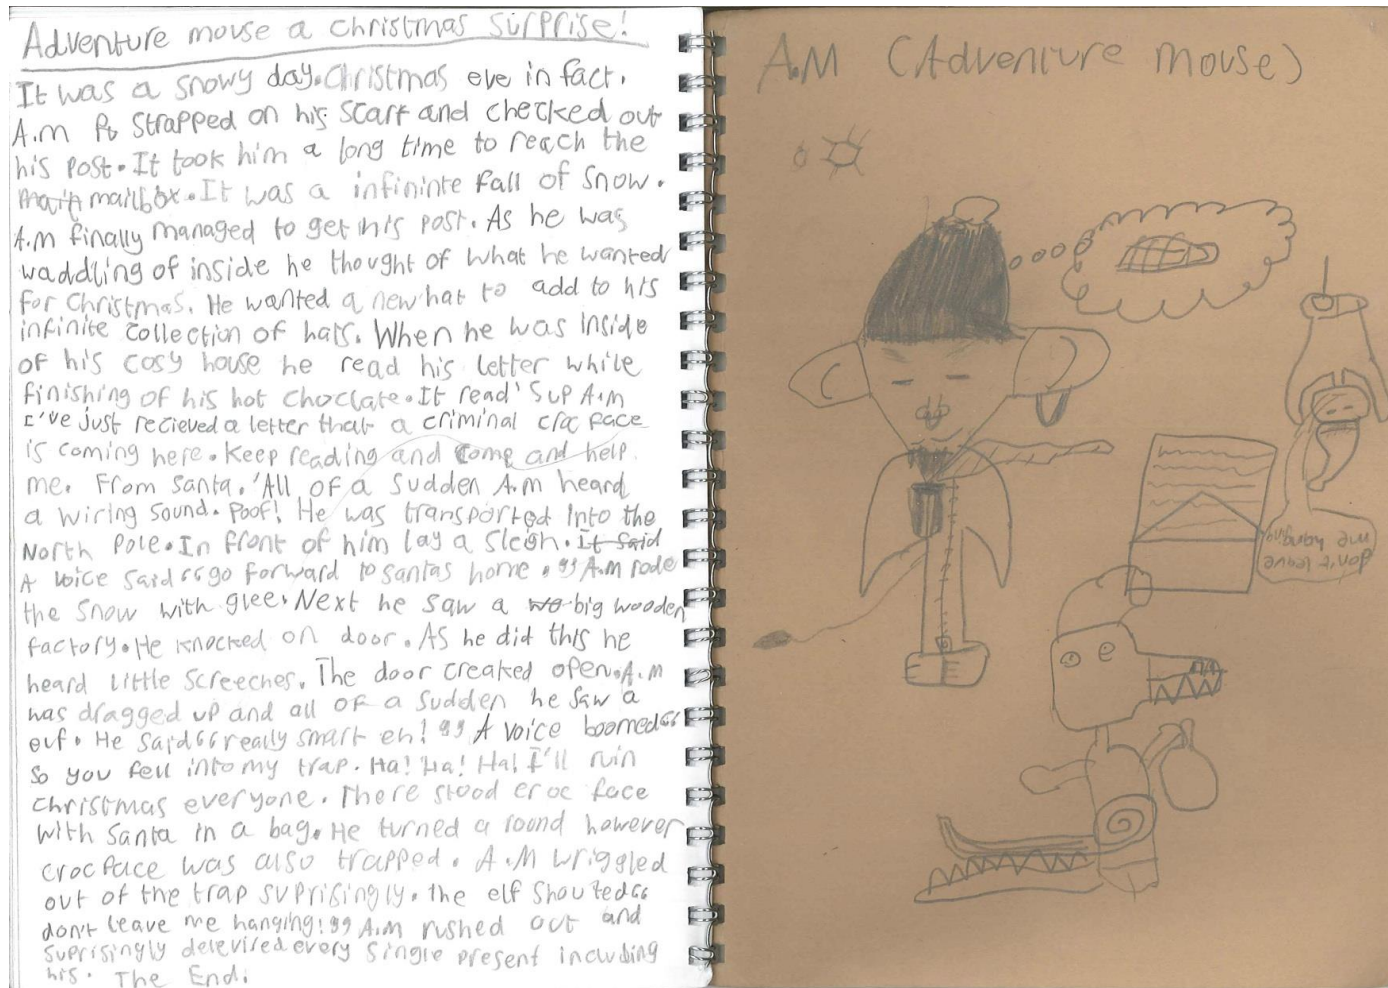 Adventure mouse a christmas surprise!
It was a snowy day. Christmas eve in fact.
A.m strapped on his scarf and checked out
his post. It took him a long time to reach the
mailbox. It was a infininte fall of snow.
A.m finally managed to get his post. As he was
waddling of inside he thought of what he wanted
for Christmas. He wanted a new hat to add to his
infinite collection of hats. When he was inside
of his cosy house he read his letter while
finishing of his hot choclate. It read ' Sup A.m
I've just recieved a letter that a criminal croc face
is coming here. Keep reading and come and help
me. From Santa. 'All of a sudden A.m heard
a wiring sound. Poof! He was transported into the
North Pole. In front of him lay a sleigh. It said
A voice said “go forward to santas home .” A.m rode
the snow with glee. Next he saw a wo big wooden
factory. He knocked on door. As he did this he
heard little screeches. The door creaked open. A.m
was dragged up and all of a sudden he saw a
elf. He said “really smart eh! ” A voice boomed “
so you fell into my trap. Ha! Ha! Ha! I'll ruin
christmas everyone. There stood croc face
with Santa in a bag. He turned a round however
crocface was also trapped. A.M wriggled
out of the trap suprisingly. The elf shouted “
don't leave me hanging! ” A.m rushed out and
suprisingly delevired every single present including
his. The End.
A.M (Adventure mouse)
don't leave
me hanging